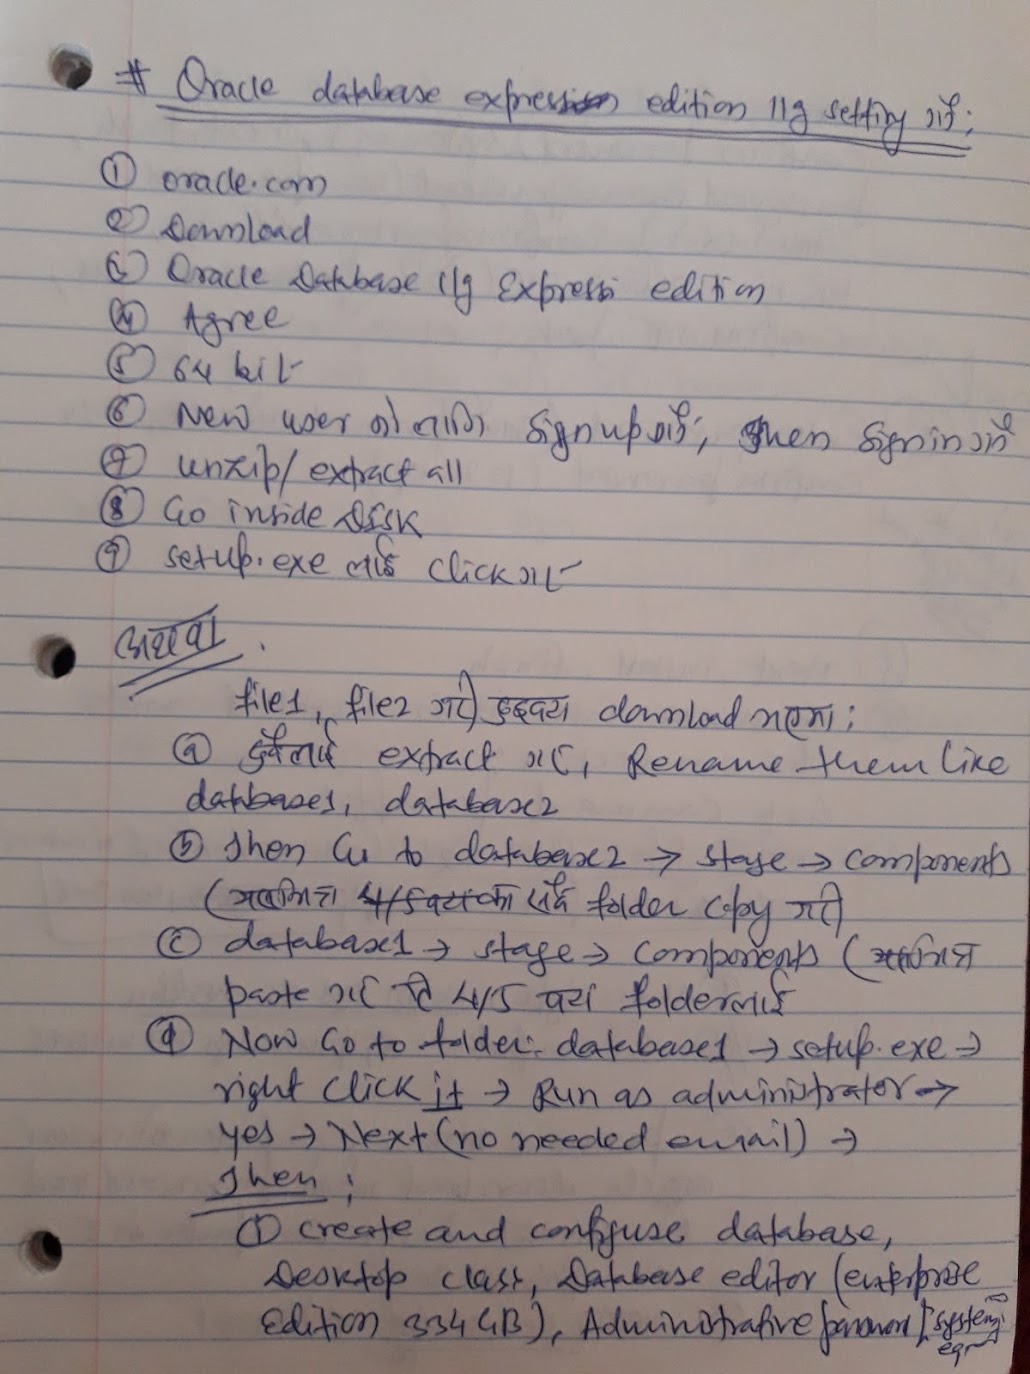 # Oracle database expression edition 11g setting गर्ने:
① oracle.com
② Download
③ Oracle Database 11g Express edition
④ Agree
⑤ 64 bit
⑥ New user भए signup गर्ने, then signin गर्ने
⑦ unzip/ extract all
⑧ Go inside DISK
⑨ setup.exe लाई click गर्ने
अथवा
file1, file2 गरी दुइवटा download भएमा:
ⓐ दुवैलाई extract गर्ने, Rename them like
database1, database2
ⓑ Then Go to database2 → stage → components
4/5 वटा folder copy गरी
ⓒ database1 → stage → components
paste गर्ने 4/5 वटा folderलाई
ⓓ Now Go to folder: database1 → setup.exe →
right click it → Run as administrator →
yes → Next (no needed email) →
Then:
① create and configuse database,
Desktop class, Database editor (enterprise
Edition 3.34GB), Administrative password